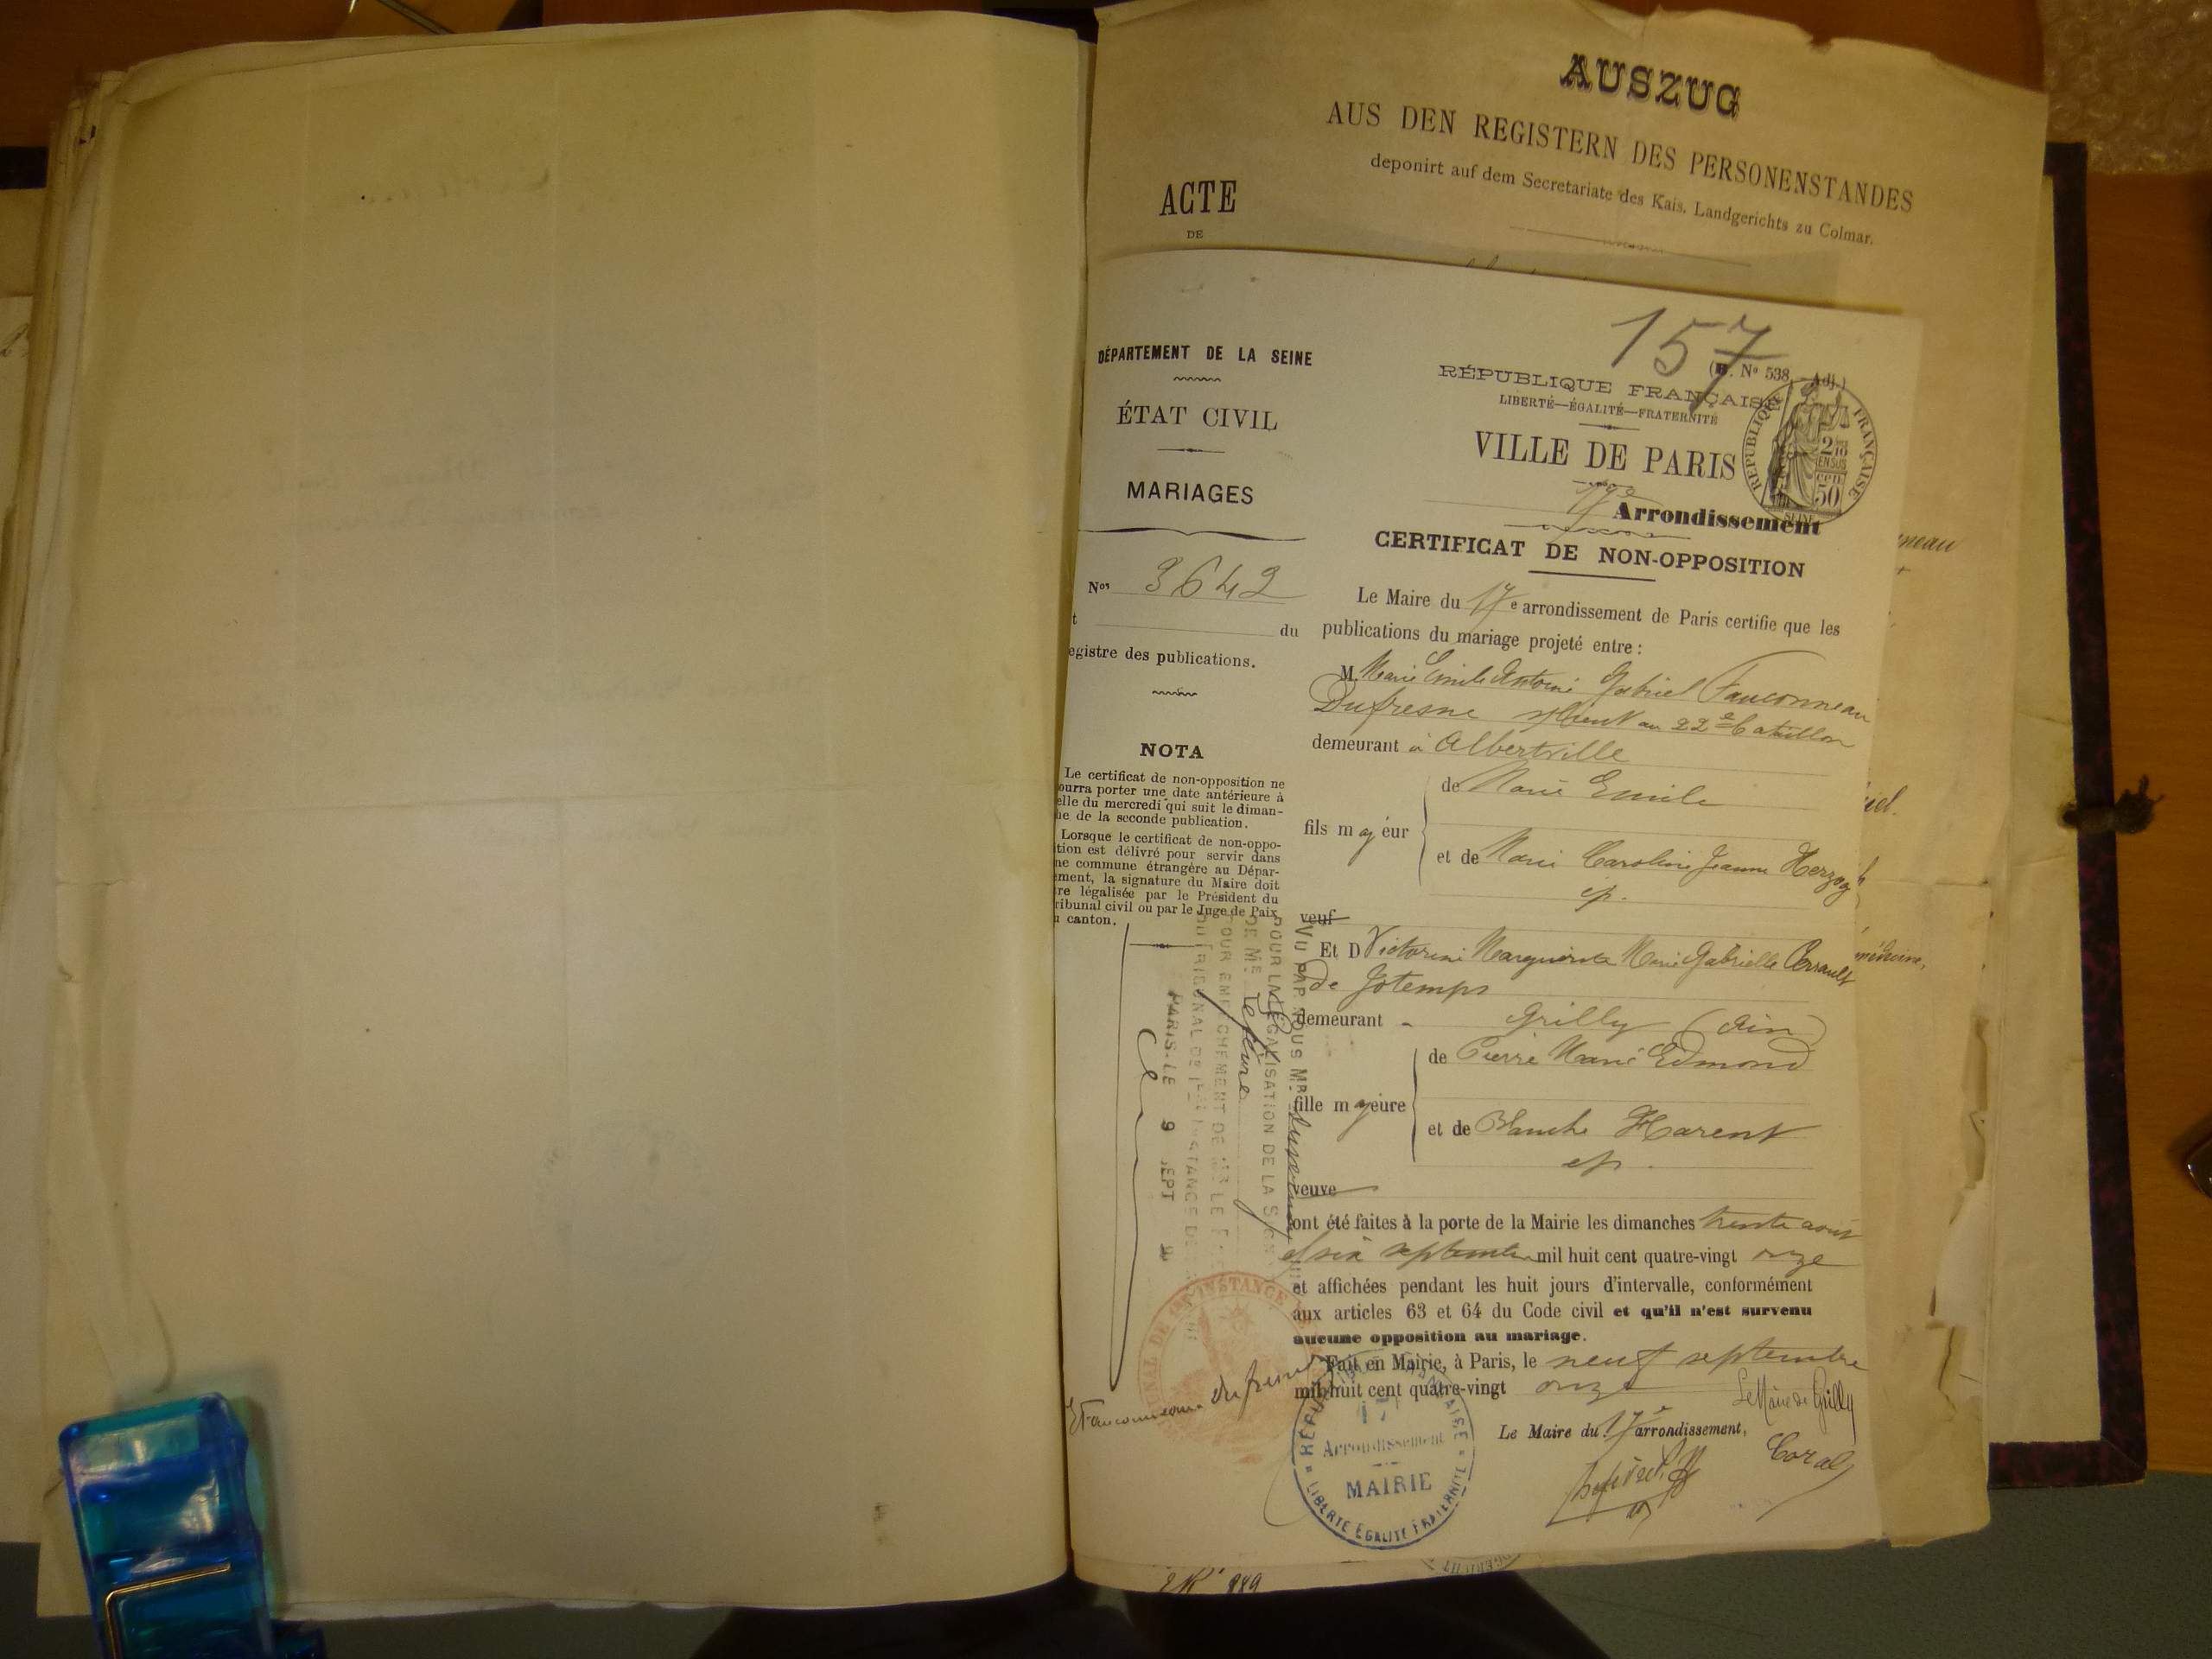 AUSZUG
AUS DEN REGISTERN DES PERSONENSTANDES
deponirt auf dem Secretariate des Kais. Landgerichts zu Colmar.
ACTE
DE
157
DÉPARTEMENT DE LA SEINE
ÉTAT CIVIL
MARIAGES
Nos 3642
t du
egistre des publications.
NOTA
Le certificat de non-opposition ne
ourra porter une date antérieure à
elle du mercredi qui suit le diman-
he de la seconde publication.
Lorsque le certificat de non-oppo-
tion est délivré pour servir dans
ne commune étrangère au Dépar-
ement, la signature du Maire doit
re légalisée par le Président du
ribunal civil ou par le Juge de Paix
u canton.
(B. No 538 - Adj.)
RÉPUBLIQUE FRANÇAISE
LIBERTÉ—ÉGALITÉ—FRATERNITÉ
VILLE DE PARIS
17e Arrondissement
RÉPUBLIQUE FRANÇAISE
2/10
EN SUS
50
SEINE
CERTIFICAT DE NON-OPPOSITION
Le Maire du 17e arrondissement de Paris certifie que les
publications du mariage projeté entre :
M. Marie Emile Antoine Gabriel Fauconneau
Dufresne au 22e Bataillon
demeurant à Albertville
de Marie Emile
fils majeur
et de Marie Caroline Jeanne Herzog
ép.
veuf
Et D Victorine Marguerite Marie Gabrielle Perrault
de Jotemps
demeurant Grilly (Ain)
de Pierre Marie Edmond
fille majeure
et de Blanche Harent
ép.
veuve
ont été faites à la porte de la Mairie les dimanches trente aout
et six septembre mil huit cent quatre-vingt onze
et affichées pendant les huit jours d'intervalle, conformément
aux articles 63 et 64 du Code civil et qu'il n'est survenu
aucune opposition au mariage.
Fait en Mairie, à Paris, le neuf septembre
mil huit cent quatre-vingt onze
Le Maire du 17e arrondissement,
Le Maire de Grilly
VU PAR NOUS MR
POUR LA LÉGALISATION DE LA SIGN
DE ME Lefèvre
POUR EMPÊCHEMENT DE MR LE
PARIS-LE 9 SEPT
Fauconneau Dufresne
RÉPUBLIQUE FRANÇAISE
17e
Arrondissement
MAIRIE
LIBERTÉ EGALITÉ FRATERNITÉ
neau